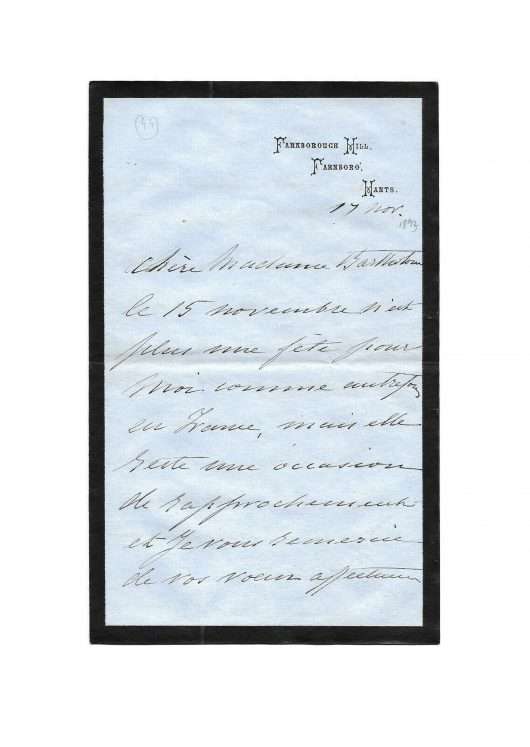 (44)
Farnborough Hill,
Farnboro',
Hants.
17 nov.
1893
chère Madame
le 15 novembre n'est
plus une fête pour
moi comme autrefois
en France, mais elle
reste une occasion
de rapprochement
et je vous remercie
de vos vœux affectueux